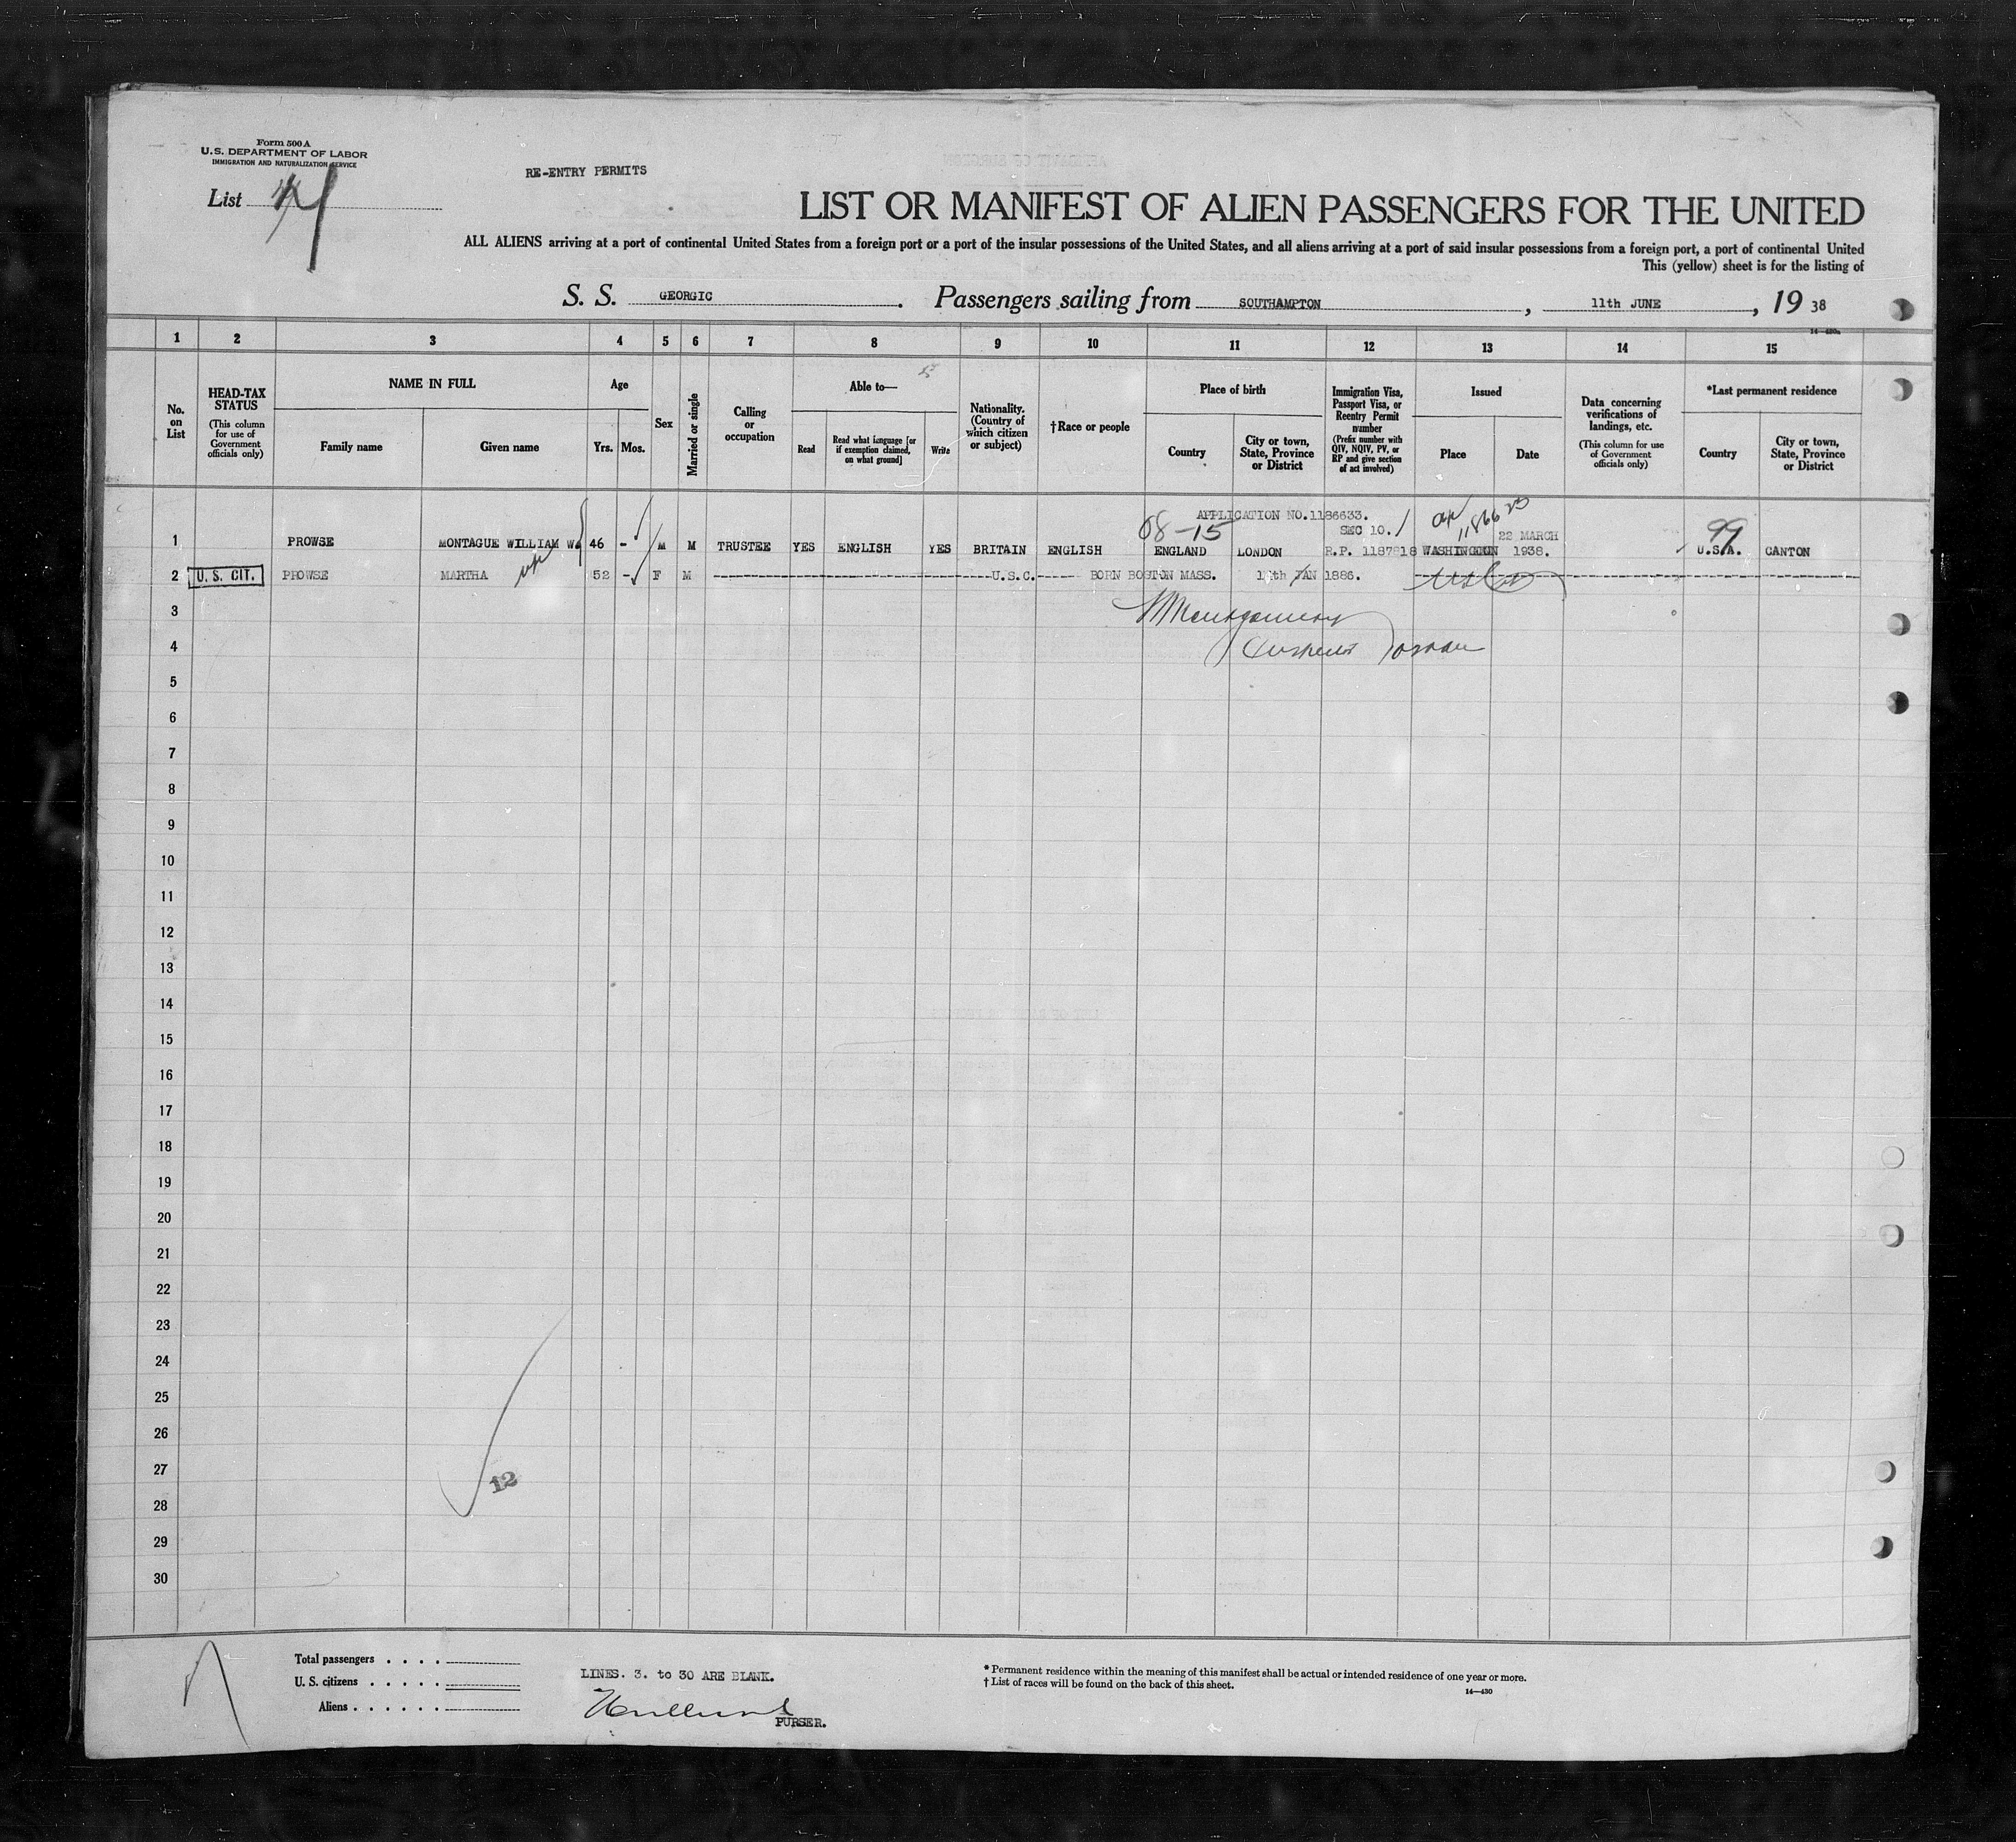 Form 500 A
U.S. DEPARTMENT OF LABOR
IMMIGRATION AND NATURALIZATION SERVICE
List
RE-ENTRY PERMITS
LIST OR MANIFEST OF ALIEN PASSENGERS FOR THE UNITED
ALL ALIENS arriving at a port of continental United States from a foreign port or a port of the insular possessions of the United States, and all aliens arriving at a port of said insular possessions from a foreign port, a port of continental United
This (yellow) sheet is for the listing of
S. S. GEORGIC. Passengers sailing from SOUTHAMPTON, 11th JUNE, 19 38
14—430a
1 2 3 4 5 6 7 8 9 10 11 12 13 14 15
No. on List
HEAD-TAX STATUS
(This column for use of Government officials only)
NAME IN FULL
Family name
Given name
Age
Yrs.
Mos.
Sex
Married or single
Calling or occupation
Able to—
Read
Read what language [or if exemption claimed, on what ground]
Write
Nationality. (Country of which citizen or subject)
†Race or people
Place of birth
Country
City or town, State, Province or District
Immigration Visa, Passport Visa, or Reentry Permit number
(Prefix number with QIV, NQIV, PV, or RP and give section of act involved)
Issued
Place
Date
Data concerning verifications of landings, etc.
(This column for use of Government officials only)
*Last permanent residence
Country
City or town, State, Province or District
APPLICATION NO.1186633.
08-15 SEC 10. 99
22 MARCH
1 PROWSE MONTAGUE WILLIAM W. 46 - M M TRUSTEE YES ENGLISH YES BRITAIN ENGLISH ENGLAND LONDON R.P. 1187818 WASHINGTON 1938. U.S.A. CANTON
2 U. S. CIT. PROWSE MARTHA 52 - F M U.S.C. BORN BOSTON MASS. JAN 1886.
3
Montgomery
4
5
6
7
8
9
10
11
12
13
14
15
16
17
18
19
20
21
22
23
24
25
26
27
12
28
29
30
Total passengers . . . .
U. S. citizens . . . . .
Aliens . . . . . .
LINES. 3. to 30 ARE BLANK.
PURSER.
* Permanent residence within the meaning of this manifest shall be actual or intended residence of one year or more.
† List of races will be found on the back of this sheet.
14—430